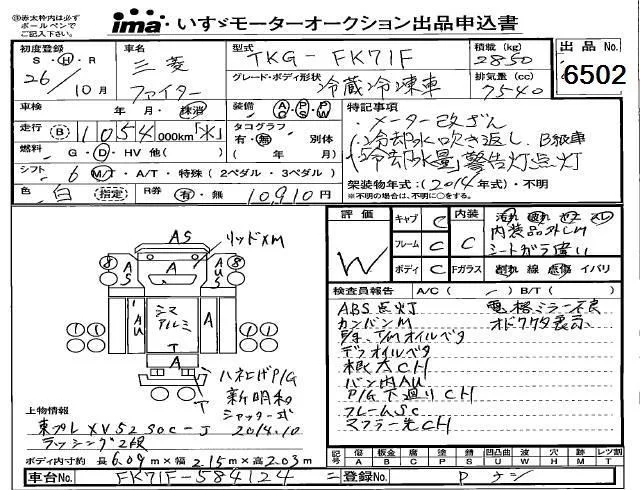 ※赤太枠内は必ずボールペンでご記入下さい。
ima いすゞモーターオークション出品申込書
初度登録 S・H・R 26年10月
車名 三菱 ファイター
型式 TKG-FK71F
グレード・ボディ形状 冷蔵冷凍車
積載(kg) 2850
排気量(cc) 7540
出品No. 6502
車検 年・月・抹消
装備 AC PS PW
走行 B 1054 000km
タコグラフ 有・無 別体(年)
燃料 G・D・HV 他( )
シフト 6 M/T・A/T・特殊(2ペダル・3ペダル)
色 白 (指定)
R券 有・無 10,910円
特記事項
・メーター改ざん
冷却水吹き返し B販車
冷却水量警告灯点灯
架装物年式:(2014年式)・不明
※不明の場合は、不明に○をする。
評価 W
キャブ C
フレーム C
ボディ C
内装 C
Fガラス
内装品外しM
シートガラ違い
割れ 線 点傷 イバリ
検査員報告 A/C( - ) B/T( )
ABS点灯
カンバンM
T/Mオイルベタ
デフオイルベタ
根太CH
バン内AU
P/G下廻りCH
フレームSC
マフラー先CH
電格ミラー不良
オドクタ表示
AS
リッドXM
8 8
A
AS
AUS
AU
シマアルミ
A
T
A
T
ハネ上げP/G
新明和
シャッター式
2014.10
上物情報
東プレ XV52SOC-J
ラッシング2段
ボディ内寸約 長6.09m×幅2.15m×高2.03m
記号 傷A 板金B 腐C 塗P 錆S 凹凸曲U 波W 穴H 時M レツ割T
車台No. FK71F-584124
登録No. Pケシ